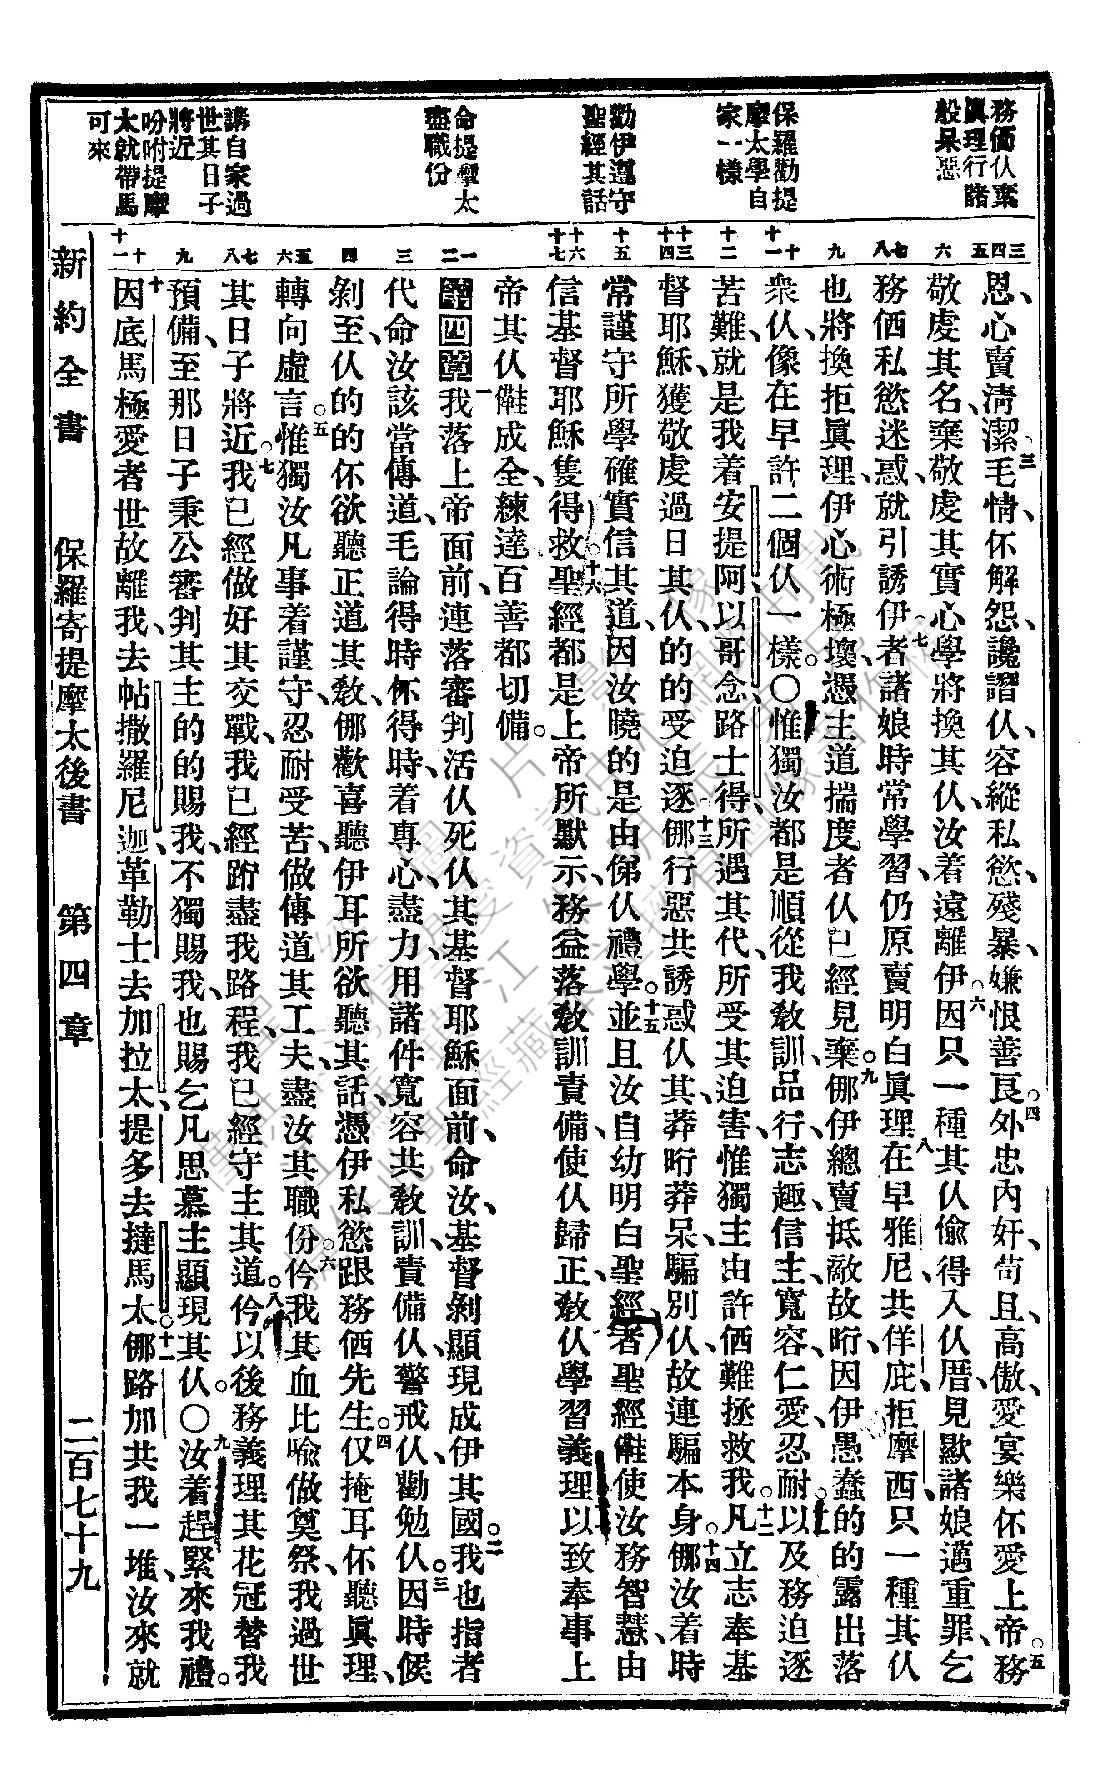 務価仈棄
眞理行諸
般呆惡
保羅勸提
摩太學自
家一樣
勸伊遵守
聖經其話
命提摩太
盡職份
講自家過
世其日子
將近
吩咐提摩
太就帶馬
可來
三四
五
六
七八
九
十十一
十二
十三十四
十五
十六十七
一二
三
四
五六
七八
九
十十一
恩、心賣淸潔。三毛情、伓解怨、讒謟仈、容縱私慾、殘暴、嫌恨善良。四外忠內奸、苟且、高傲、愛宴樂伓愛上帝。五務
敬虔其名、棄敬虔其實心、學將換其仈、汝着遠離伊。六因只一種其仈偷得入仈厝、見歎諸娘邁重罪、乞
務価私慾迷惑、就引誘伊者。七諸娘時常學習、仍原賣明白眞理。八在早雅尼、共佯庇、拒摩西、只一種其仈
也將換拒眞理、伊心術極壞。憑主道揣度者仈已經見棄。九𠆧伊總賣抵敵故昕、因伊愚蠢的的露出落
衆仈、像在早許二個仈一樣。○惟獨汝都是順從我敎訓、品行、志趣、信主、寬容、仁愛、忍耐。十一以及務迫逐
苦難、就是我着安提阿、以哥念、路士得、所遇其、代所受其迫害、惟獨主由許価難拯救我。十二凡立志奉基
督耶穌、獲敬虔過日其仈、的的受迫逐。十三𠆧行惡共誘惑仈其、莽昕莽呆、騙別仈、故連騙本身。十四𠆧汝着時
常謹守所學確實信其道、因汝曉的是由俤仈禮學。十五並且汝自幼明白聖經、者聖經𠆧使汝務智慧、由
信基督耶穌、隻得救。十六聖經都是上帝所默示、務益落敎訓、責備、使仈歸正、敎仈學習義理。十七以致奉事上
帝其仈、𠆧成全、練達百善都切備。
第四章一我落上帝面前、連落審判活仈死仈其基督耶穌面前、命汝、基督剝顯現成伊其國。二我也指者
代命汝、該當傳道、毛論得時伓得時、着專心盡力、用諸件寬容、共敎訓、責備仈、警戒仈、勸勉仈。三因時候
剝至、仈的的伓欲聽正道其敎、𠆧歡喜聽伊耳所欲聽其話、憑伊私慾、跟務価先生。四仅掩耳伓聽眞理、
轉向虛言。五惟獨汝凡事着謹守、忍耐受苦、做傳道其工夫、盡汝其職份。六仱我其血比喩做奠祭、我過世
其日子將近。七我已經做好其交戰、我已經跑盡我路程、我已經守主其道。八仱以後務義理其花冠替我
預備、至那日子、秉公審判其主的的賜我、不獨賜我、也賜乞凡思慕主顯現其仈。○九汝着趕緊來我禮。
十因底馬極愛者世故、離我去帖撒羅尼迦、革勒士去加拉太、提多去撻馬太。十一𠆧路加共我一堆、汝來就
新約全書　保羅寄提摩太後書　第四章　二百七十九